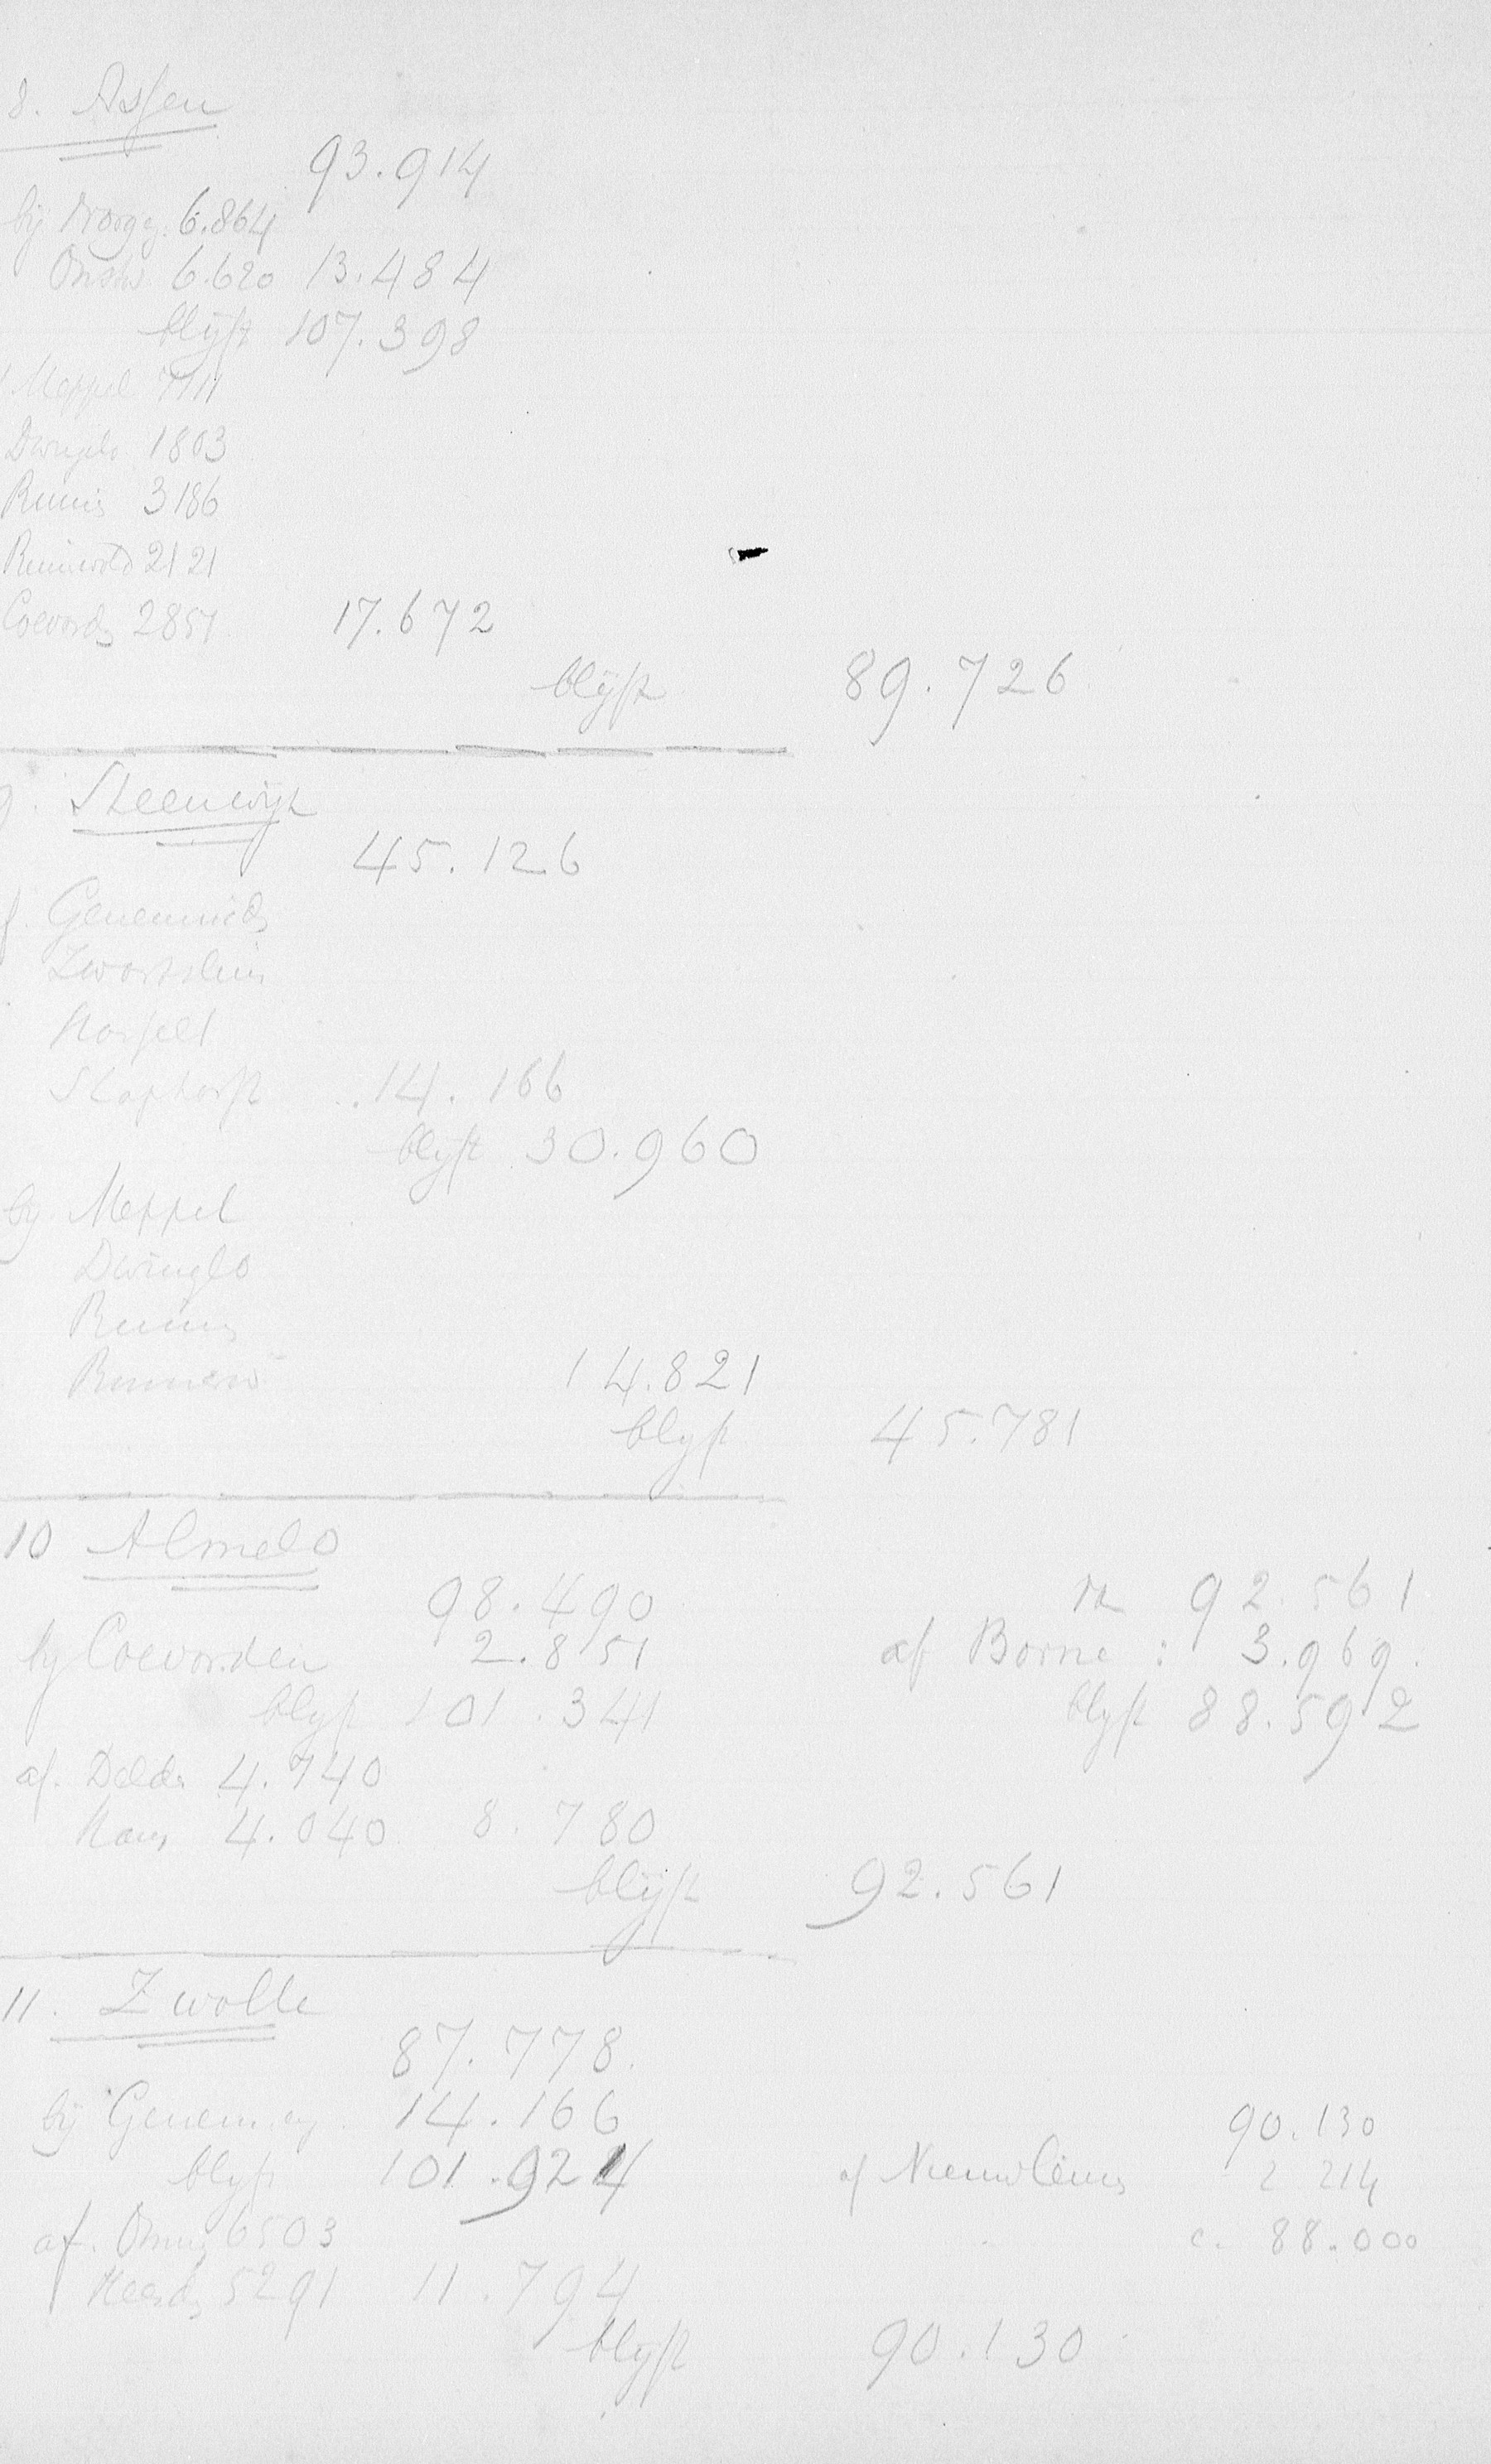 8. Assen
93.914
bij Norg 6.864
Onstw. 6.620 13.484
blijft 107.398
Meppel 7711
Dwingelo 1803
Ruinen 3186
Ruinerwold 2121
Coevorden 2851 17.672
blijft 89.726
9. Steenwijk
45.126
f. Genemuiden
Zwartsluis
Hasselt
Staphorst 14.166
blijft 30.960
bij Meppel
Dwinglo
Ruinen
Ruinerw 14.821
blijft 45.781
10 Almelo
98.490
bij Coevorden 2.851
blijft 101.341
af. Delden 4.740
4.040 8.780
blijft 92.561
92.561
af Borne: 3.969.
blijft 88.592
11. Zwolle
87.778.
bij Genem. en 14.166
blijft 101.924
af. Ommen 6503
Heerde 5291 11.794
blijft 90.130
90.130
af Nieuwleusen 2 214
c. 88.000